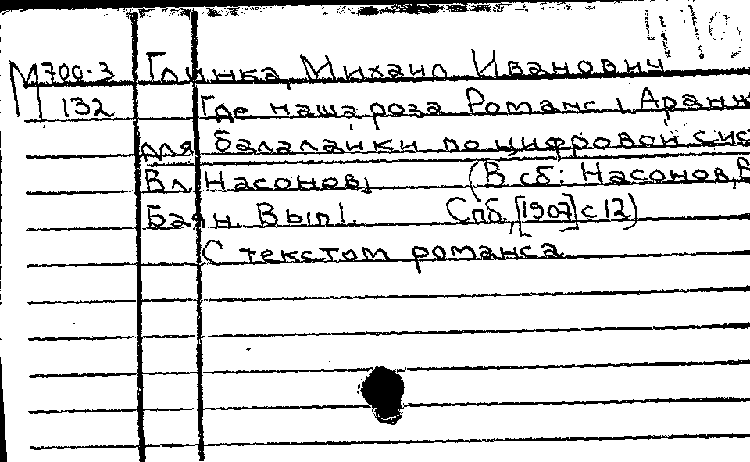 419
М700-3 Глинка, Михаил Иванович
132 Где наша роза Романс, Аранж
для балалайки по цифровой сис
Вл. Насонов, (В сб: Насонов, В
Баян. Вып 1. Спб, [1907] с 12)
С текстом романса